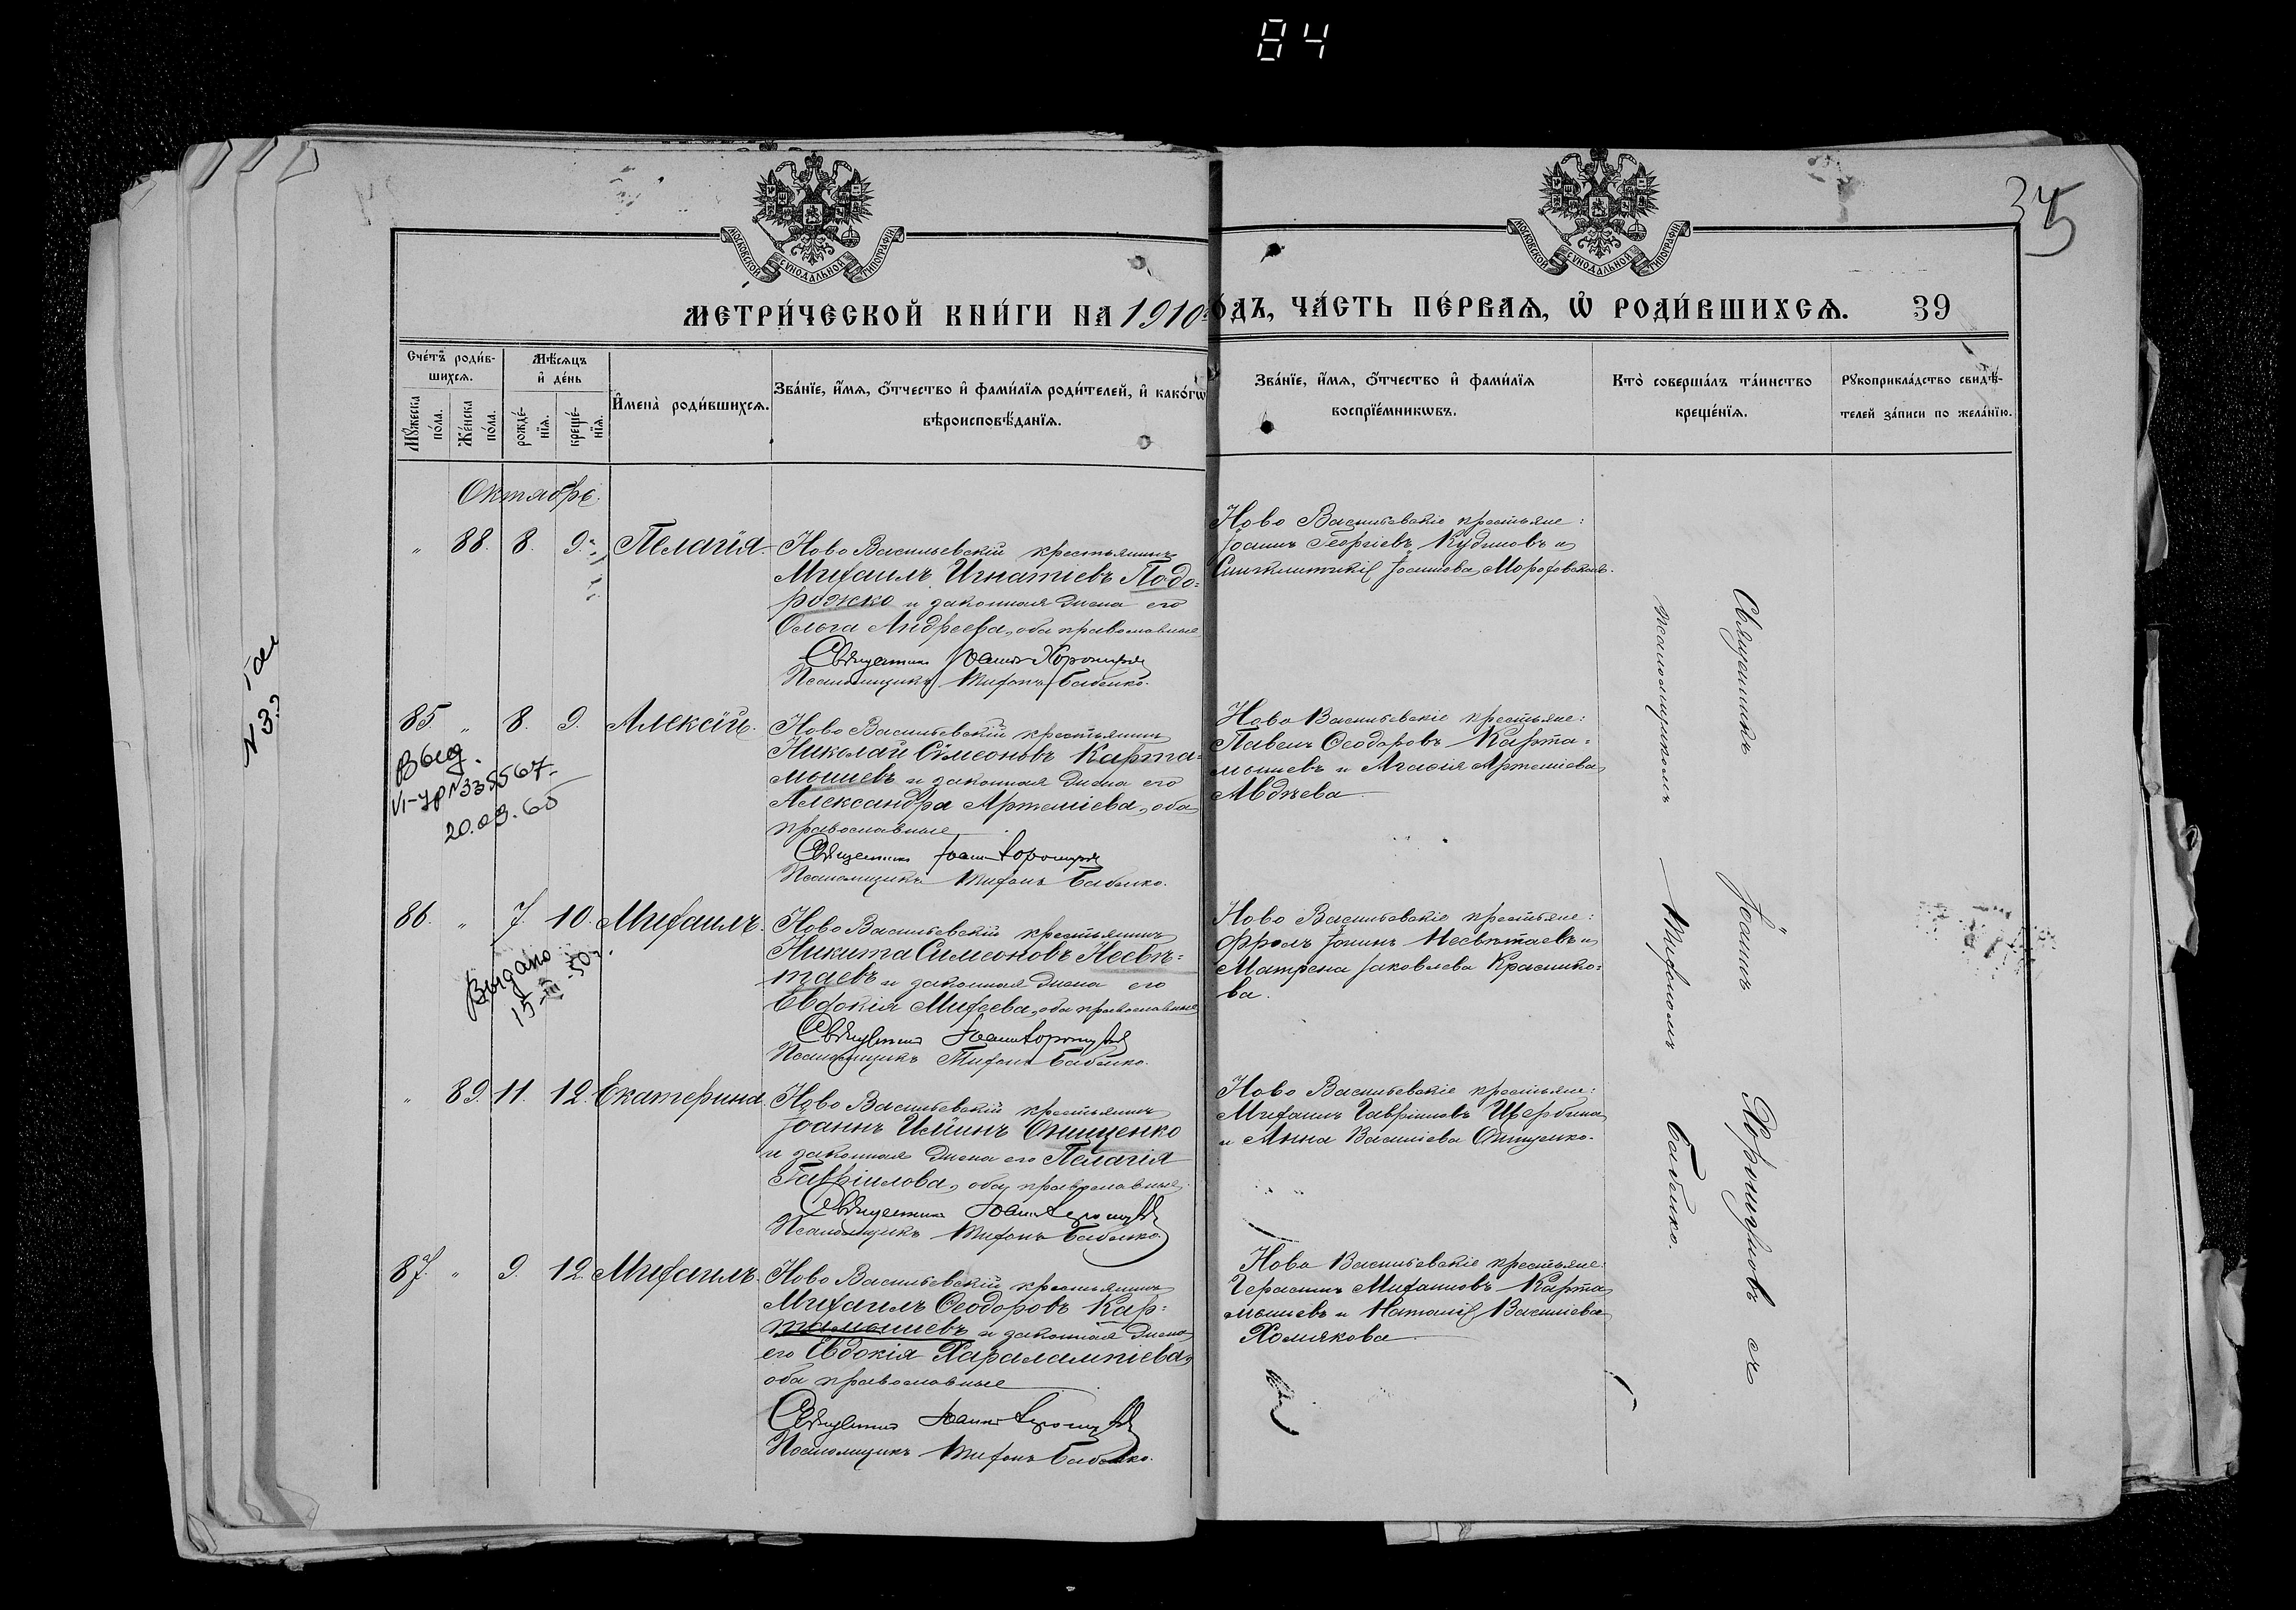 84
345
МОСКОВСКОЙ СѴНОДАЛЬНОЙ ТИПОГРАФІИ
МОСКОВСКОЙ СѴНОДАЛЬНОЙ ТИПОГРАФІИ
МЕТРИ́ЧЕСКОЙ КНИ́ГИ НА 1910 ГО́ДЪ, ЧА́СТЬ ПЕ́РВАѦ, Ѽ РОДИ́ВШИХСѦ. 39
Сче́тъ роди́в-
шихсѧ.
Мꙋ́жеска по́ла.
Же́нска по́ла.
Мѣ́сѧцъ и҆ де́нь
рожде́-нїѧ.
креще́-нїѧ.
И҆мена̀ роди́вшихсѧ.
Зва́нїе, и҆́мѧ, ѻ҆́тчество и҆ фами́лїѧ роди́телей, и҆ како́гѡ
вѣроисповѣ́данїѧ.
Зва́нїе, и҆́мѧ, ѻ҆́тчество и҆ фами́лїѧ
воспрїе́мникѡвъ.
Кто̀ соверша́лъ та́инство
креще́нїѧ.
Рꙋкоприкла́дство свидѣ́-
телей за́писи по жела́нїю.
Октябрь.
" 88. 8. 9. Пелагія.
Ново Васильевскій крестьянинъ
Михаилъ Игнатіевъ Подо-
рожко и законная жена его
Ольга Андреева, оба православные
Священникъ Іоаннъ
Псаломщикъ Тифонъ Бабенко.
Ново Васильевскіе крестьяне:
Іоаннъ Георгіевъ Кудиновъ и
Синклитикія Іоаннова Морозовская.
85 " 8. 9. Алексій.
Ново Васильевскій крестьянинъ
Николай Сѵмеоновъ Карта-
мышевъ и законная жена его
Александра Артеміева, оба
православные
Священникъ Іоаннъ
Псаломщикъ Тифонъ Бабенко.
Ново Васильевскіе крестьяне:
Павелъ Ѳеодоровъ Карта-
мышевъ и Агафія Артеміева
Авдѣева
Выд.
VI-УР №335567
20.03.65
86. " 7. 10. Михаилъ.
Ново Васильевскій крестьянинъ
Никита Симеоновъ Несвѣ-
таевъ и законная жена его
Евдокія Михеева, оба православные
Священникъ Іоаннъ
Псаломщикъ Тифонъ Бабенко.
Ново Васильевскіе крестьяне:
Фролъ Іонинъ Несвѣтаевъ и
Матрена Іаковлева Краснико-
ва.
Выдано
15-III-50г.
" 89. 11. 12. Екатерина.
Ново Васильевскій крестьянинъ
Іоаннъ Иліинъ Онищенко
и законная жена его Пелагія
Гавріилова, оба православные
Священникъ Іоаннъ
Псаломщикъ Тифонъ Бабенко.
Ново Васильевскіе крестьяне:
Михаилъ Гавріиловъ Щербина
и Анна Василіева Онищенко.
87. " 9. 12. Михаилъ.
Ново Васильевскій крестьянинъ
Михаилъ Ѳеодоровъ Кар-
тамышевъ и законная жена
его Евдокія Харалампіева,
оба православные
Священникъ Іоаннъ
Псаломщикъ Тифонъ Бабенко.
Ново Васильевскіе крестьяне:
Герасимъ Михаиловъ Карта
мышевъ и Наталія Василіева
Хомякова
Священникъ Іоаннъ съ
псаломщикомъ Тифономъ Бабенко.